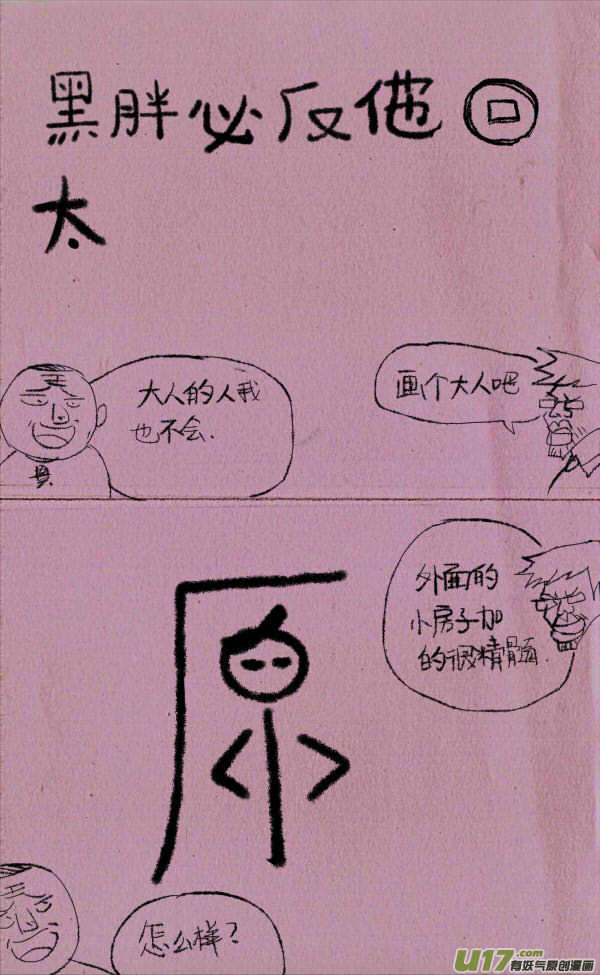 黑胖必反他回
太
画个大人吧
大人的人我
也不会.
王
外面的
小房子加
的很精髓.
原
怎么样?
U17.com
有妖气原创漫画